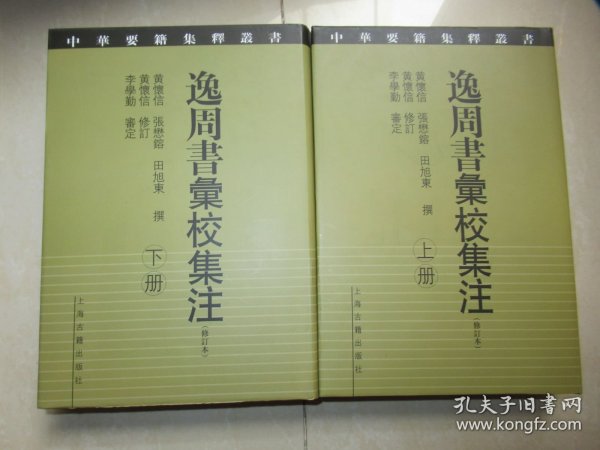 中華要籍集釋叢書
逸周書彙校集注
(修訂本)
下册
黄懷信 張懋鎔 田旭東 撰
黄懷信 修訂
李學勤 審定
上海古籍出版社
中華要籍集釋叢書
逸周書彙校集注
(修訂本)
上册
黄懷信 張懋鎔 田旭東 撰
黄懷信 修訂
李學勤 審定
上海古籍出版社
孔夫子旧书网
www.kongfz.com